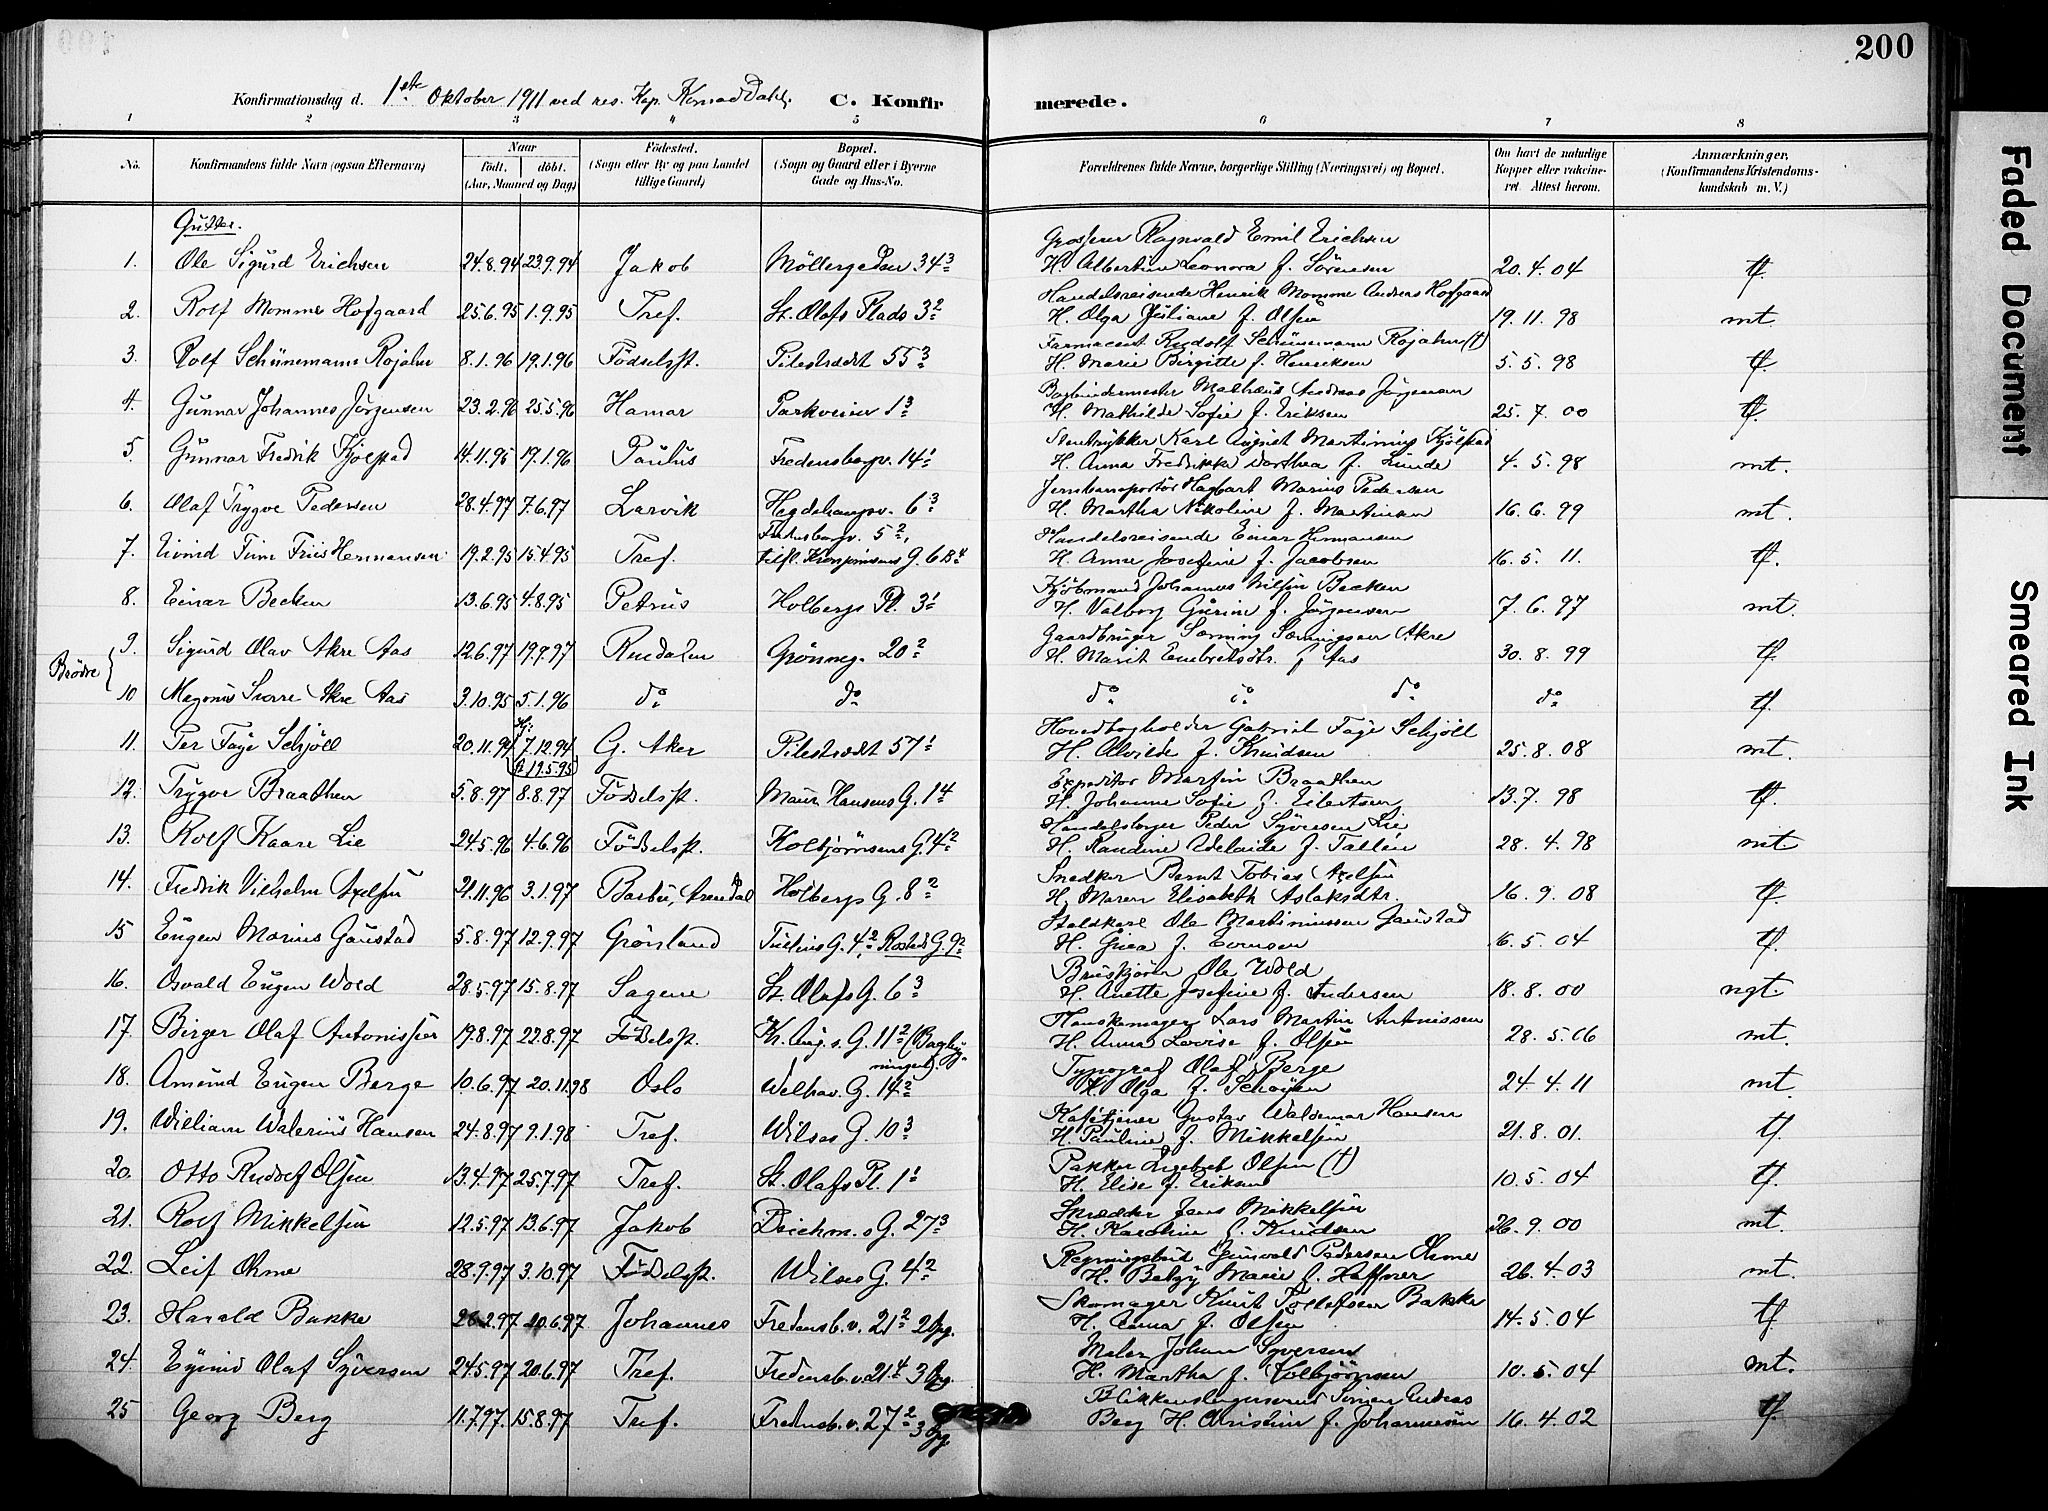 200
Konfirmationsdag d. 1ste Oktober 1911 ved res. Kap. Konrad Dahl. C. Konfirmerede.
1 2 3 4 5 6 7 8
No. Konfirmandens fulde Navn (ogsaa Efternavn) Naar født. døbt. (Aar, Maaned og Dag) Fødested. (Sogn eller By og paa Landet tillige Gaard) Bopæl. (Sogn og Gaard eller i Byerne Gade og Hus-No. Forældrenes fulde Navne, borgerlige Stilling (Næringsvei) og Bopæl. Om havt de naturlige Kopper eller vakcineret. Attest herom. Anmærkninger. (Konfirmandens Kristendomskundskab m. V.)
Gutter.
Grosserer Ragnvald Emil Erichsen
1. Ole Sigurd Erichsen 24.8.94 23.9.94 Jakob Möllergaden 34³ H. Albertine Leonora f. Sörensen 20.4.04 tf.
Handelsreisende Henrik Momme Andreas Hofgaard
2. Rolf Momme Hofgaard 25.6.95 1.9.95 Tref. St. Olafs Plads 3² H. Olga Juliane f. Olsen 19.11.98 mt.
Farmaceut Rudolf Schünemann Rojahn (†)
3. Rolf Schünemann Rojahn 8.1.96 19.1.96 Födselsst. Pilestrædet 55³ H. Marie Birgitte f. Henriksen 5.5.98 tf.
Bogbindermester Mathæus Andreas Jörgensen
4. Gunnar Johannes Jörgensen 23.2.96 25.5.96 Hamar Parkveien 1³ H. Mathilde Sofie f. Eriksen 25.7.00 tf.
Stentrykker Karl August Martinius Kjölstad
5. Gunnar Fredrik Kjölstad 14.11.95 19.1.96 Paulus Fredensborgv. 14¹ H. Anna Fredrikke Dorthea f. Lunde 4.5.98 mt.
Jernbaneportör Hagbart Marius Pedersen
6. Olaf Trygve Pedersen 28.4.97 7.6.97 Larvik Hegdehaugsv. 6³ H. Martha Nikoline f. Martinsen 16.6.99 mt.
Fredensborgv. 5², Handelsreisende Einar Hermansen
7. Eivind Tim Friis Hermansen 19.2.95 15.4.95 Tref. G. 6B⁴ H. Anna Josefine f. Jacobsen 16.5.11. tf.
Kjöbmand Johannes Nilsen Becken
8. Einar Becken 13.6.95 4.8.95 Petrus Holbergs Pl. 3¹ H. Valborg Gurine f. Jörgensen 7.6.97 mt.
Gaardbruger Sörensen Akre
9. Sigurd Olav Akre Aas 12.6.97 19.9.97 Rendalen Grönneg. 20² H. Marit Embretsdtr. f. Aas 30.8.99 tf.
Brödre {
10 Magnus Snorre Akre Aas 3.10.95 5.1.96 do do do do do do tf.
Hovedbogholder Gabriel Faye Schjöll
11. Per Faye Schjöll 20.11.94 Hj: 7.12.94 K 19.5.95 G. Aker Pilestrædet 57¹ H. Alvilde f. Knudsen 25.8.08 mt.
Expeditör Martin Braathen
12. Trygve Braathen 5.8.97 8.8.97 Födselsst. Maur. Hansens G. 1⁴ H. Johanne Sofie f. Eilertsen 13.7.98 tf.
Handelsborger Peder Syversen Lie
13. Rolf Kaare Lie 24.5.96 4.6.96 Födselsst. Kolbjörnsens G. 4² H. Randine Adelaide f. Tallén 28.4.98 mt
Snedker Bernt Tobias Axelsen
14. Fredrik Vilhelm Axelsen 21.11.96 3.1.97 Barbu, Arendal Holbergs G. 8² H. Maren Elisabeth Aslaksdtr. 16.9.08 tf.
Staldkarl Ole Martiniussen Gaustad
15 Eugen Marius Gaustad 5.8.97 12.9.97 Grönland Tullins G. 4², Rosteds G. 9² H. Grea f. Evensen 16.5.04 tf.
Ole Wold
16. Osvald Eugen Wold 28.5.97 15.8.97 Sagene St. Olafs G. 6³ H. Anette Josefine f. Andersen 18.8.00 ngt.
Hanskemager Lars Martin Antonissen
17. Birger Olaf Antonissen 19.8.97 22.8.97 Födselsst. Kr. Aug.s G. 11² (Bagbygningen). H. Anna Lovise f. Olsen 28.5.06 mt.
Typograf Olaf Berge
18. Amund Eugen Berge 10.6.97 20.11.98 Oslo Welhav. G. 14² H. Olga f. Schöyen 24.4.11 mt.
Gustav Waldemar Hansen
19. William Walerius Hansen 24.8.97 9.1.98 Tref. Wilses G. 10³ H. Pauline f. Mikkelsen 21.8.01. tf.
Pakker Engebret Olsen (†)
20. Otto Rudolf Olsen 13.4.97 25.7.97 Tref. St. Olafs Pl. 1¹ H. Elise f. Eriksen 10.5.04 tf.
Skrædder Jens Mikkelsen
21. Rolf Mikkelsen 12.5.97 13.6.97 Jakob Deichm.s G. 27³ H. Karoline f. Knudsen 26.9.00 mt.
Regningsbud Gunvald Pedersen Ohme
22. Leif Ohme 28.9.97 3.10.97 Födselsst. Wilses G. 4² H. Betzy Marie f. Haffner 26.4.03 mt.
Skomager Knut Tollefsen Bakke
23. Harald Bakke 26.2.97 20.6.97 Johannes Fredensb.v. 21² 2 Opg. H. Anna f. Olsen 14.5.04 tf
Maler Johan Syversen
24. Eyvind Olaf Syversen 24.5.97 20.6.97 Tref. Fredensb.v. 21⁴ 3 Opg. H. Martha f. Kolbjörnsen 10.5.04 mt.
Blikkenslagersvend Andreas
25 Georg Berg 11.7.97 15.8.97 Tref. Fredensb.v. 27² 3 Opg. Berg H. Christine f. Johannesen 16.4.02 tf.
Faded Document
Smeared Ink